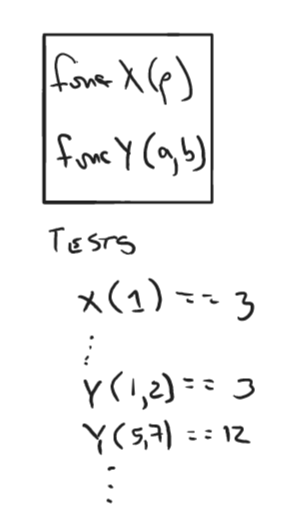 func X(p)
func Y(a,b)
TESTS
X(1) == 3
⋮
Y(1,2) == 3
Y(5,7) == 12
⋮